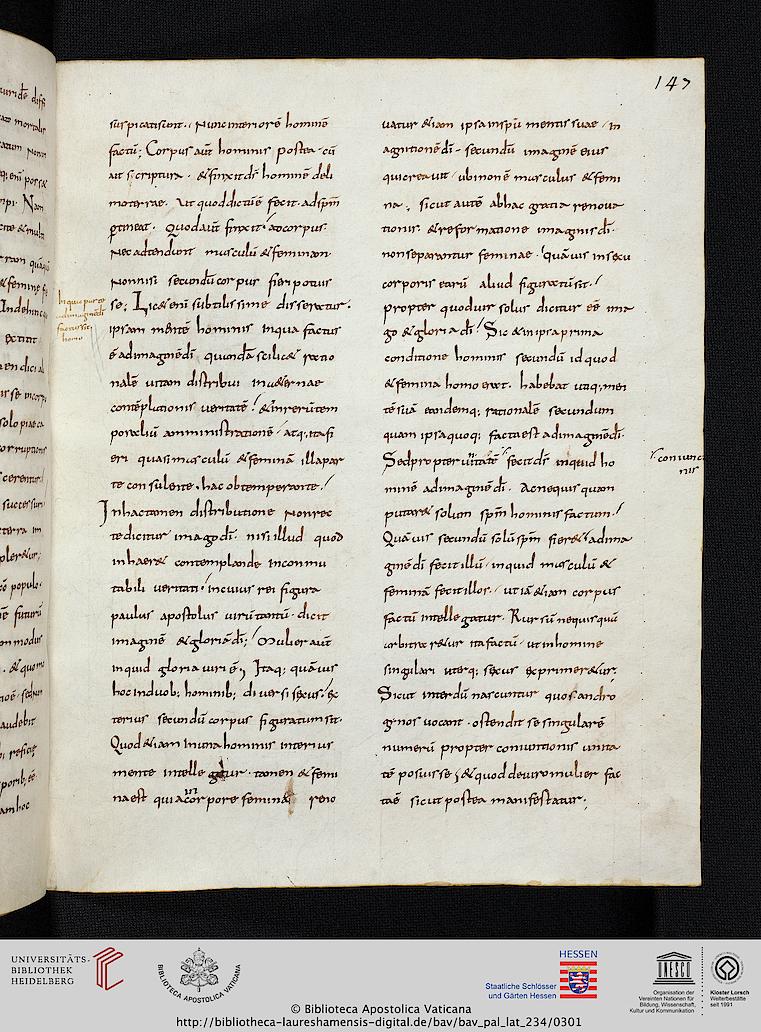 147
suspicati sunt. Nunc interiorē hominē
factū; Corpus aūt hominis postea cū
ait scriptura. & finxit dš hominē de li
mo terrae. Ut quod dictū ē fecit. ad spm̄
ptineat. Quod aūt finxit, ad corpus
Nec adtendunt masculū & feminam
Nonnisi secundū corpus fieri potuis
se; Lic& enī subtilissime disseratur.
ipsam mentē hominis in qua factus
ē ad imaginē dī quandā scilic& ratio
nalē vitam distribui in & aernae
contēplationis veritatē & in rerū tem
poraliū amministrationē atq; ita fi
eri quasi masculū & feminā illa par
te consulente. hac obtemperante.
In hac tamen distributione non rec
te dicitur imago dī. nisi illud quod
inhaer& contemplandae incommu
tabili veritati. in cuius rei figura
paulus apostolus virū tantū dicit
imaginē & gloriā dī; Mulier aūt
inquid gloria viri ē, Itaq; quāvis
hoc in duob; hominib; diversi sexus. ex
terius secundū corpus figuratum sit.
Quod &iam in una hominis interius
mente intellegatur. tamen & femi
na est quia corpore femina reno
vatur &iam ipsa in spū mentis suae in
agnitionē dī. secundū imaginē eius
qui creavit. ubi non ē masculus & femi
na. sicut autē ab hac gratia renova
tionis & reformatione imaginis dī.
non separantur feminae. Quāvis in sexu
corporis earū aliud figuratū sit.
propter quod vir solus dicitur eē ima
go & gloria dī. Sic & in ipsa prima
conditione hominis secundū id quod
& femina homo erat. habebat utiq; men
tē suā eandemq; rationalē secundum
quam ipsa quoq; facta est ad imaginē dī.
Sed propter unitatē fecit dš inquid ho
minē ad imaginē dī. Ac nequis quam
putar& solum spm̄ hominis factum.
Quāvis secundū solū spm̄ fier& ad ima
ginē dī fecit illū inquid masculū &
feminā fecit illos. ut iā &iam corpus
factū intellegatur. Rursū nequisquā
arbitrar&ur ita factū. ut in homine
singulari uterq; sexus exprimer&ur.
Sicut interdū nascuntur quos andro
ginos vocant. ostendit se singularē
numerū propter coniunctionis unita
tē posuisse, & quod de viro mulier fac
ta ē sicut postea manifestatur;
ad imaginē dī
factus sit
homo
coniunc
nis
UNIVERSITÄTS-
BIBLIOTHEK
HEIDELBERG
BIBLIOTECA APOSTOLICA VATICANA
HESSEN
Staatliche Schlösser
und Gärten Hessen
UNESCO
Organisation der
Vereinten Nationen für
Bildung, Wissenschaft,
Kultur und Kommunikation
Kloster Lorsch
Welterbestätte
seit 1991
© Biblioteca Apostolica Vaticana
http://bibliotheca-laureshamensis-digital.de/bav/bav_pal_lat_234/0301